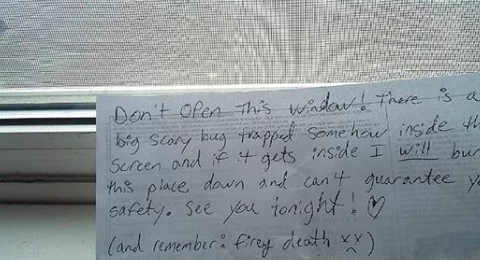 Don't open This window! There is a
big scary bug trapped somehow inside th
screen and if it gets inside I will bur
this place down and can't guarantee yo
safety. See you tonight! ♡
(and remember: firey death xx)